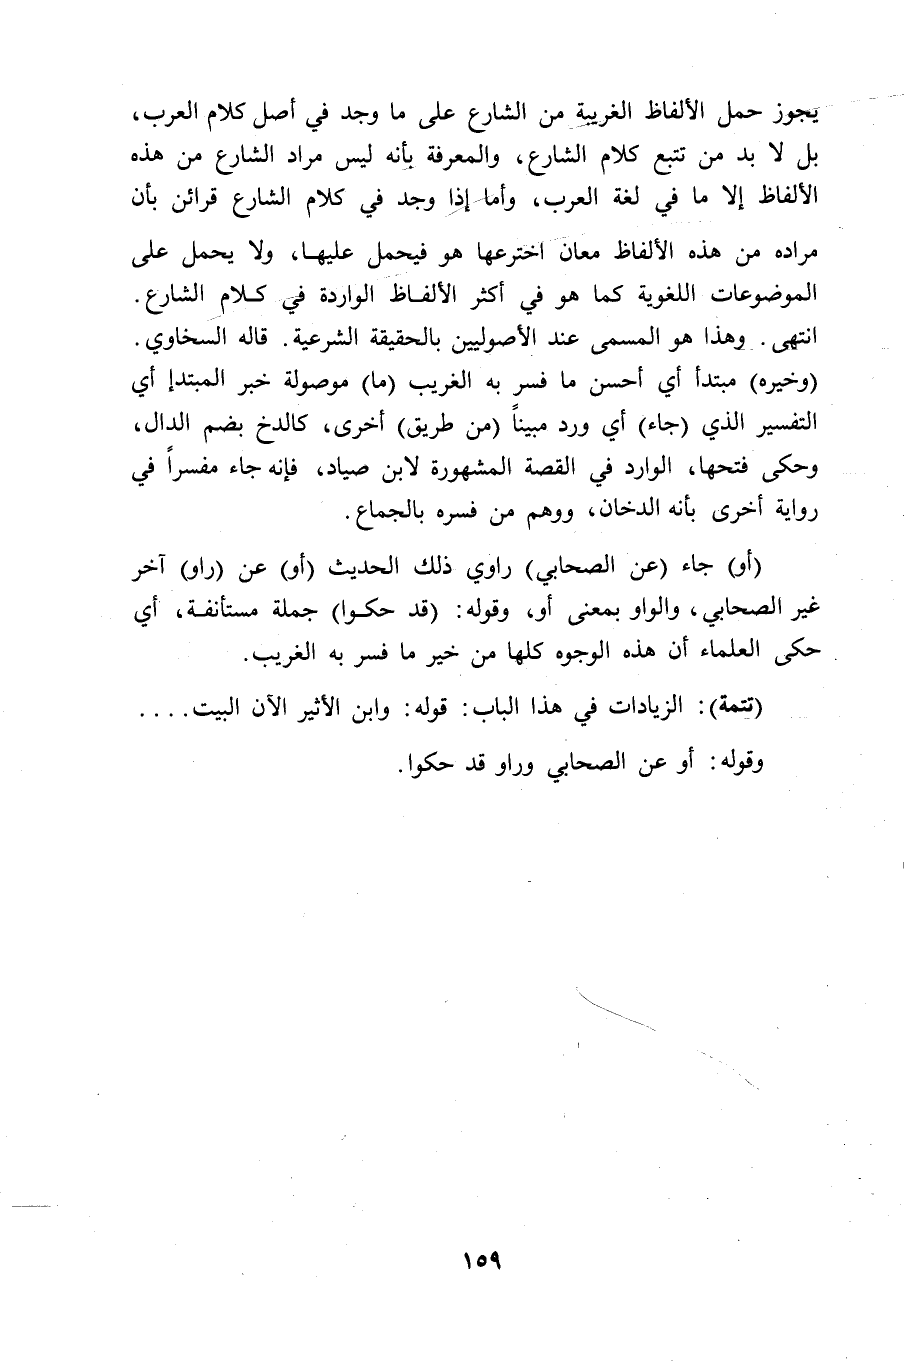 يجوز حمل الألفاظ الغريبة من الشارع على ما وجد في أصل كلام العرب،
بل لا بد من تتبع كلام الشارع، والمعرفة بأنه ليس مراد الشارع من هذه
الألفاظ إلا ما في لغة العرب، وأما إذا وجد في كلام الشارع قرائن بأن
مراده من هذه الألفاظ معان اخترعها هو فيحمل عليها، ولا يحمل على
الموضوعات اللغوية كما هو في أكثر الألفاظ الواردة في كلام الشارع.
انتهى. وهذا هو المسمى عند الأصوليين بالحقيقة الشرعية. قاله السخاوي.
(وخيره) مبتدأ أي أحسن ما فسر به الغريب (ما) موصولة خبر المبتدإ أي
التفسير الذي (جاء) أي ورد مبيناً (من طريق) أخرى، كالدخ بضم الدال،
وحكى فتحها، الوارد في القصة المشهورة لابن صياد، فإنه جاء مفسراً في
رواية أخرى بأنه الدخان، ووهم من فسره بالجماع.
(أو) جاء (عن الصحابي) راوي ذلك الحديث (أو) عن (راو) آخر
غير الصحابي، والواو بمعنى أو، وقوله: (قد حكوا) جملة مستأنفة، أي
حكى العلماء أن هذه الوجوه كلها من خير ما فسر به الغريب.
(تتمة): الزيادات في هذا الباب: قوله: وابن الأثير الآن البيت. . . .
وقوله: أو عن الصحابي وراو قد حكوا.
١٥٩